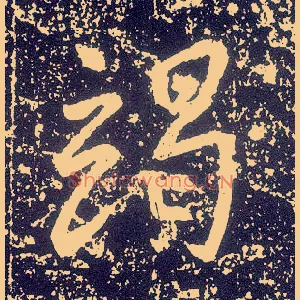 謁
Shufawang.CN